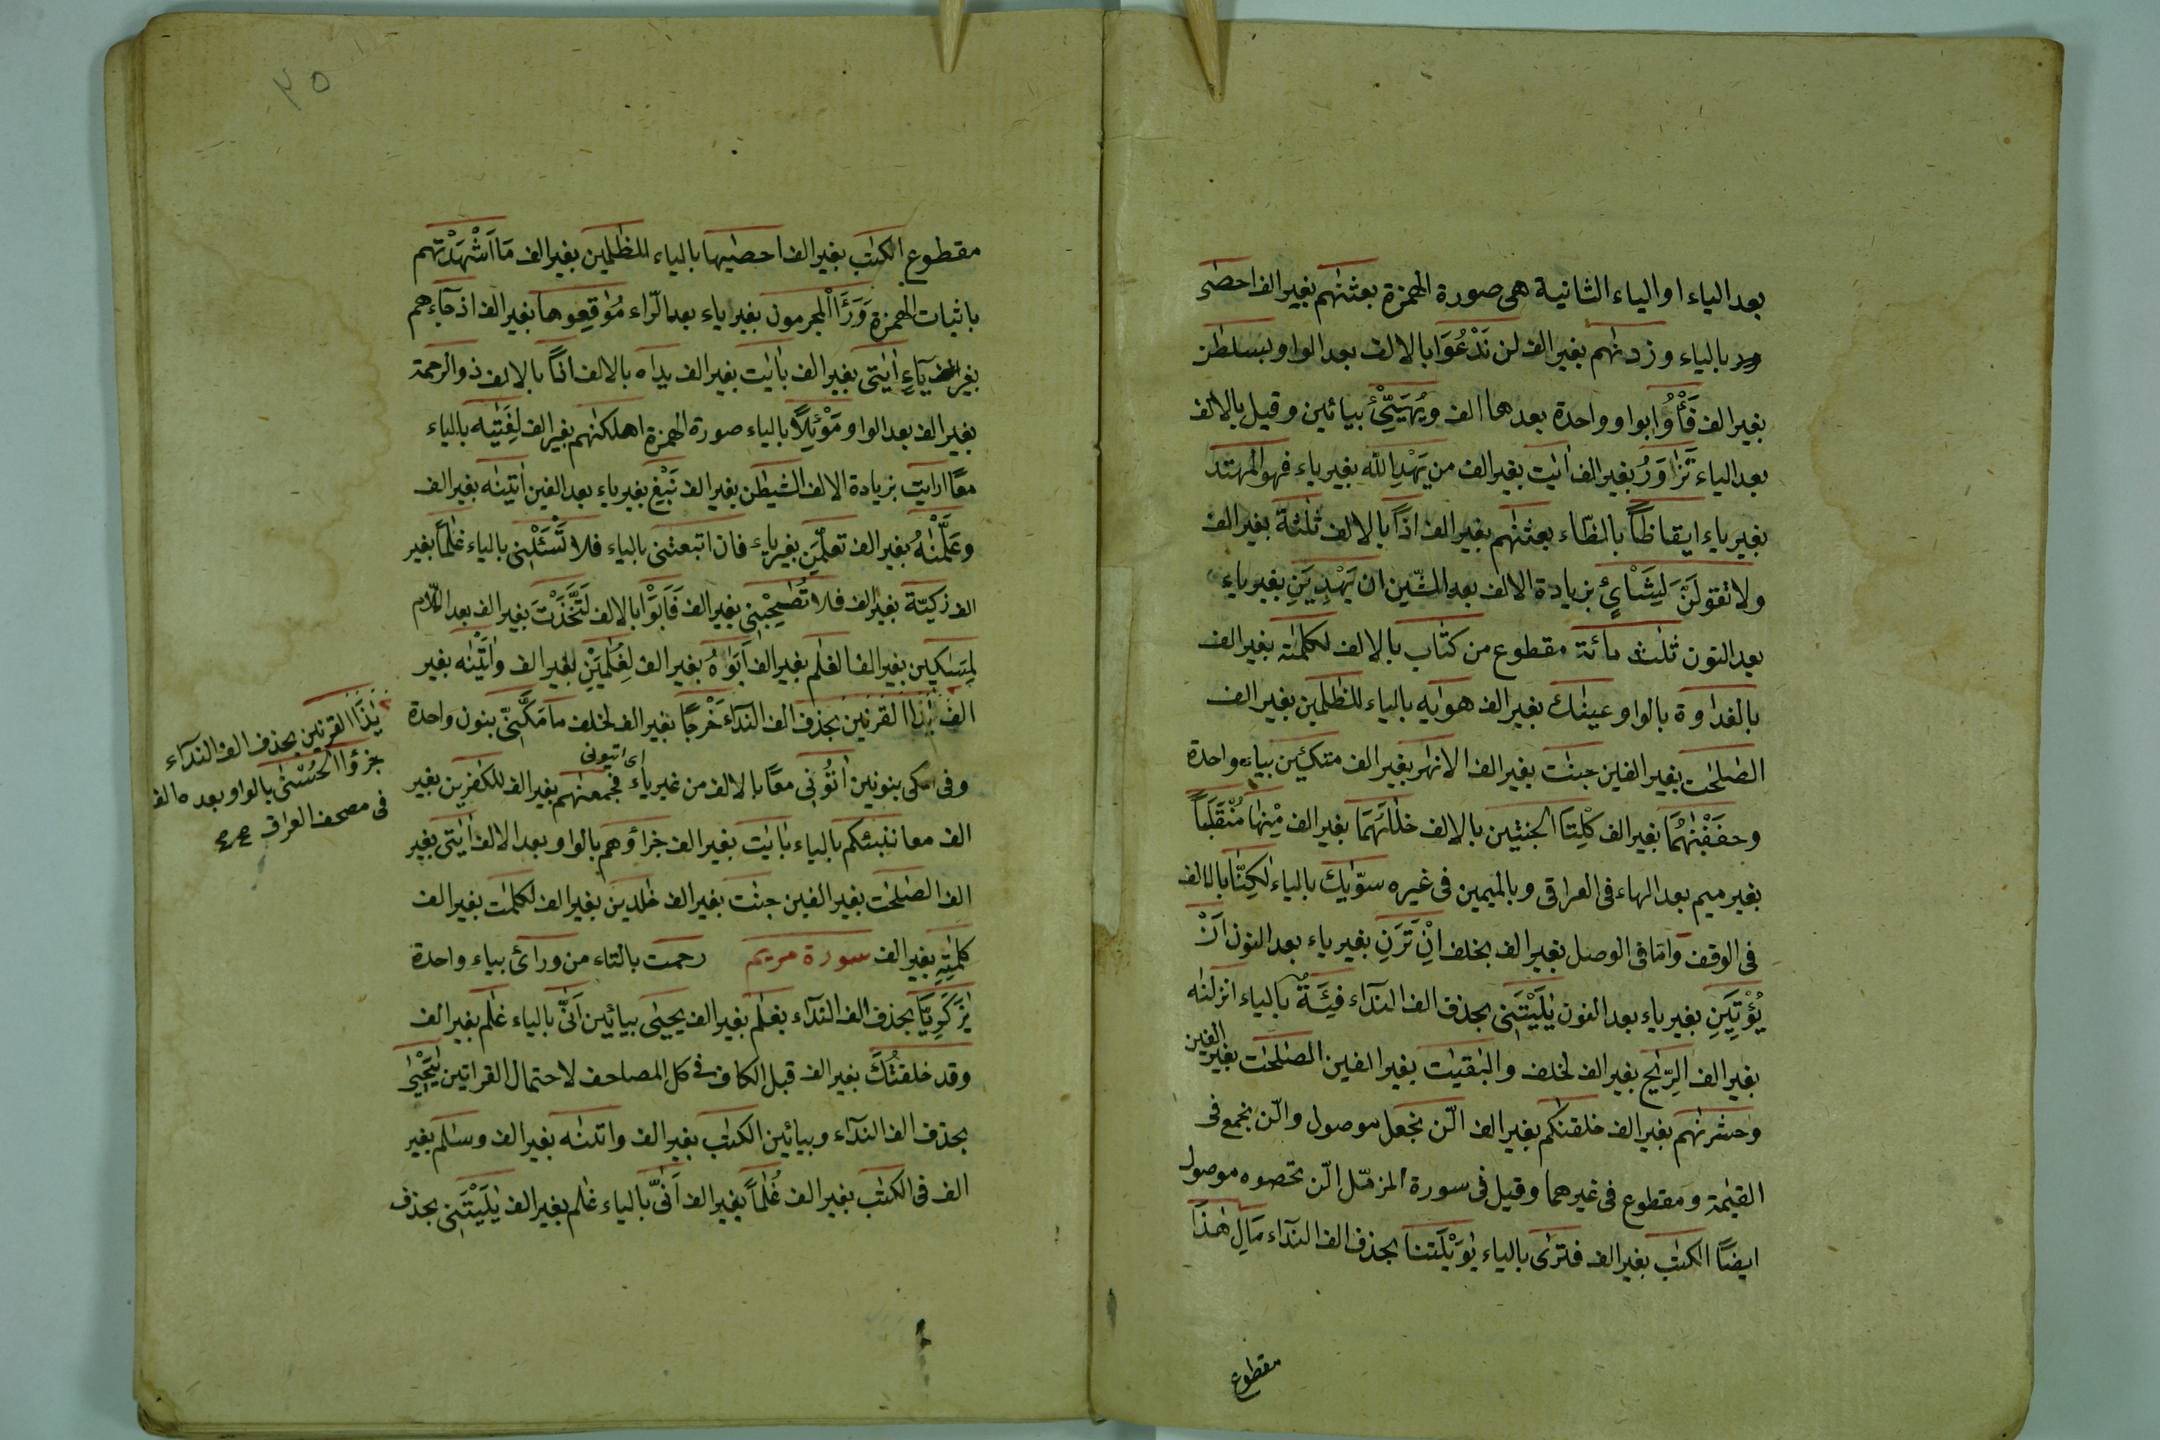 بعد الياء او الياء الثانية هى صورة الهمزة بعثنٰهم بغير الف احصٰى
بالياء وزدنٰهم بغير الف لن نَدْعُوَا بالالف بعد الواو بسلطٰن
بغير الف فَأْوُا بواو واحدة بعدهما الف ويُهَيِّئْ بيائين وقيل بالالف
بعد الياء تَزٰاوَرُ بغير الف اٰيٰت بغير الف من يَهْدِ الله بغير ياء فهو المهتد
بغير ياء ايقاظًا بالظاء بعثنٰهم بغير الف اذًا بالالف ثلٰثة بغير الف
ولا تقولَنَّ لِشَاْئٍ بزيادة الالف بعد الشّين ان يَهْدِيَنِ بغير ياء
بعد النون ثلٰث مائة مقطوع من كتاب بالالف لكلمٰته بغير الف
بالغدٰوة بالواو عينٰك بغير الف هوٰيه بالياء للظٰلمين بغير الف
الصٰلحٰت بغير الفين جنٰت بغير الف الانهٰر بغير الف متكئين بياء واحدة
وحففنٰهُمَا بغير الف كِلْتَا الجنتين بالالف خلٰلَهُمَا بغير الف مِنْهَا مُنْقَلَبًا
بغير ميم بعد الهاء فى العراقى وبالميمين فى غيره سوّٰيك بالياء لٰكِنَّا بالالف
فى الوقف وامّا فى الوصل بغير الف بخلف اِنْ تَرَنِ بغير ياء بعد النون اَنْ
يُؤْتِيَنِ بغير ياء بعد النون يٰلَيْتَنِى بحذف الف النداء فِئَةٌ بالياء انزلنٰه
بغير الف الرِّيٰح بغير الف لخلف والبٰقيٰت بغير الفين الصٰلحٰت بغير الفين
وحشرنٰهم بغير الف خلقنٰكم بغير الف الّن نجعل موصول والّن نجمع فى
القيٰمة ومقطوع فى غيرهما وقيل فى سورة المزمّل الّن تحصوه موصول
ايضًا الكتٰب بغير الف فترى بالياء يٰوَيْلَتنا بحذف الف النداء مَالِ هٰذَا
مقطوع
٢٥
مقطوع الكتٰب بغير الف احصٰيها بالياء للظٰلمين بغير الف مَا اَشْهَدْتهم
باثبات الهمزة وَرَءَا الْمجرمون بغير ياء بعد الرّاء مُوٰقِعوها بغير الف اذ جآءهم
بغير ياء اٰيٰتى بغير الف باٰيٰت بغير الف يداه بالالف اذًا بالالف ذو الرحمة
بغير الف بعد الواو مَوْئِلًا بالياء صورة الهمزة اهلكنٰهم بغير الف لِفَتٰيه بالياء
معًا ارايت بزيادة الالف الشيطٰن بغير الف نَبْغِ بغير ياء بعد الغين اٰتينٰه بغير الف
وعَلَّمْنٰهُ بغير الف تعلّمَنِ بغير ياء فان اتبعتنى بالياء فلا تَسْئَلْنِى بالياء غلٰمًا بغير
الف زكيّة بغير الف فلا تُصٰحِبْنى بغير الف فَاَبَوْا بالالف لَتَّخَذْتَ بغير الف بعد اللّام
لِمسٰكين بغير الف الغلٰم بغير الف اَبَوٰاهُ بغير الف لِغُلٰمَيْنِ بغير الف واٰتَيْنٰه بغير
الف يٰذَا القرنين بحذف الف النداء خَرْجًا بغير الف لخلف ما مَكَّنِّى بنون واحدة
وفى مكى بنونين اٰتُونِى معًا بالالف من غير ياء فجمعنٰهم بغير الف للكٰفرين بغير
اى ايتونى
الف معا ننبئكم بالياء باٰيٰت بغير الف جزاؤهم بالواو بعد الالف اٰيٰتى بغير
الف الصٰلحٰت بغير الفين جنٰت بغير الف خٰلدين بغير الف لكلمٰت بغير الف
كلمٰتِ بغير الف سورة مريم رحمت بالتاء من ورائ بياء واحدة
يٰزَكَرِيَّا بحذف الف النداء بغلٰم بغير الف يحيٰى بيائين اَنّٰى بالياء غلٰم بغير الف
وقد خلقتُكَ بغير الف قبل الكاف فى كل المصاحف لاحتمال القراتين يٰيَحْيٰى
بحذف الف النداء وبيائين الكتٰب بغير الف واتينٰه بغير الف وسلٰم بغير
الف فى الكتٰب بغير الف غُلٰمًا بغير الف اَنّٰى بالياء غلٰم بغير الف يٰلَيْتَنِى بحذف
يٰذَا القرنين بحذف الف النداء
جزؤا الحُسْنٰى بالواو بعده الف
فى مصحف العراق